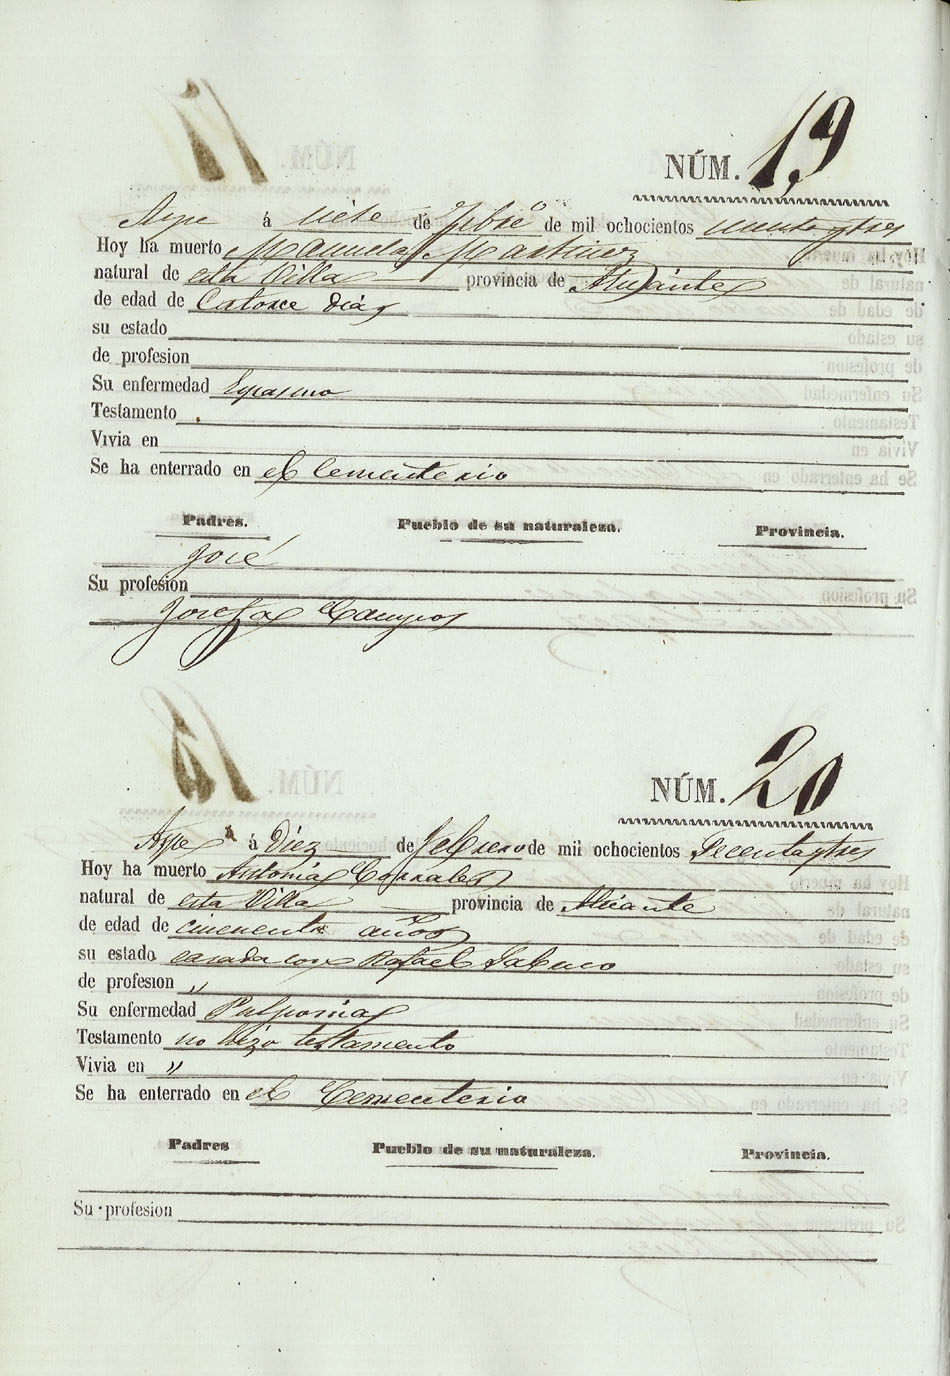 NÚM. 19
Aspe á siete de Febrº de mil ochocientos sesenta y tres
Hoy ha muerto Manuela Martinez
natural de esta Villa provincia de Alicante
de edad de Catorce dias
su estado
de profesion
Su enfermedad Espasmo
Testamento
Vivia en
Se ha enterrado en el Cementerio
Padres. Pueblo de su naturaleza. Provincia.
José
Su profesion
Josefa Campos
NÚM. 20
Aspe á Diez de Febrero de mil ochocientos Secenta y tres
Hoy ha muerto Antonia Corrales
natural de esta Villa provincia de Alicante
de edad de cincuenta años
su estado casada con Rafael
de profesion "
Su enfermedad Pulmonia
Testamento no hizo testamento
Vivia en "
Se ha enterrado en el Cementerio
Padres Pueblo de su naturaleza. Provincia.
Su profesion